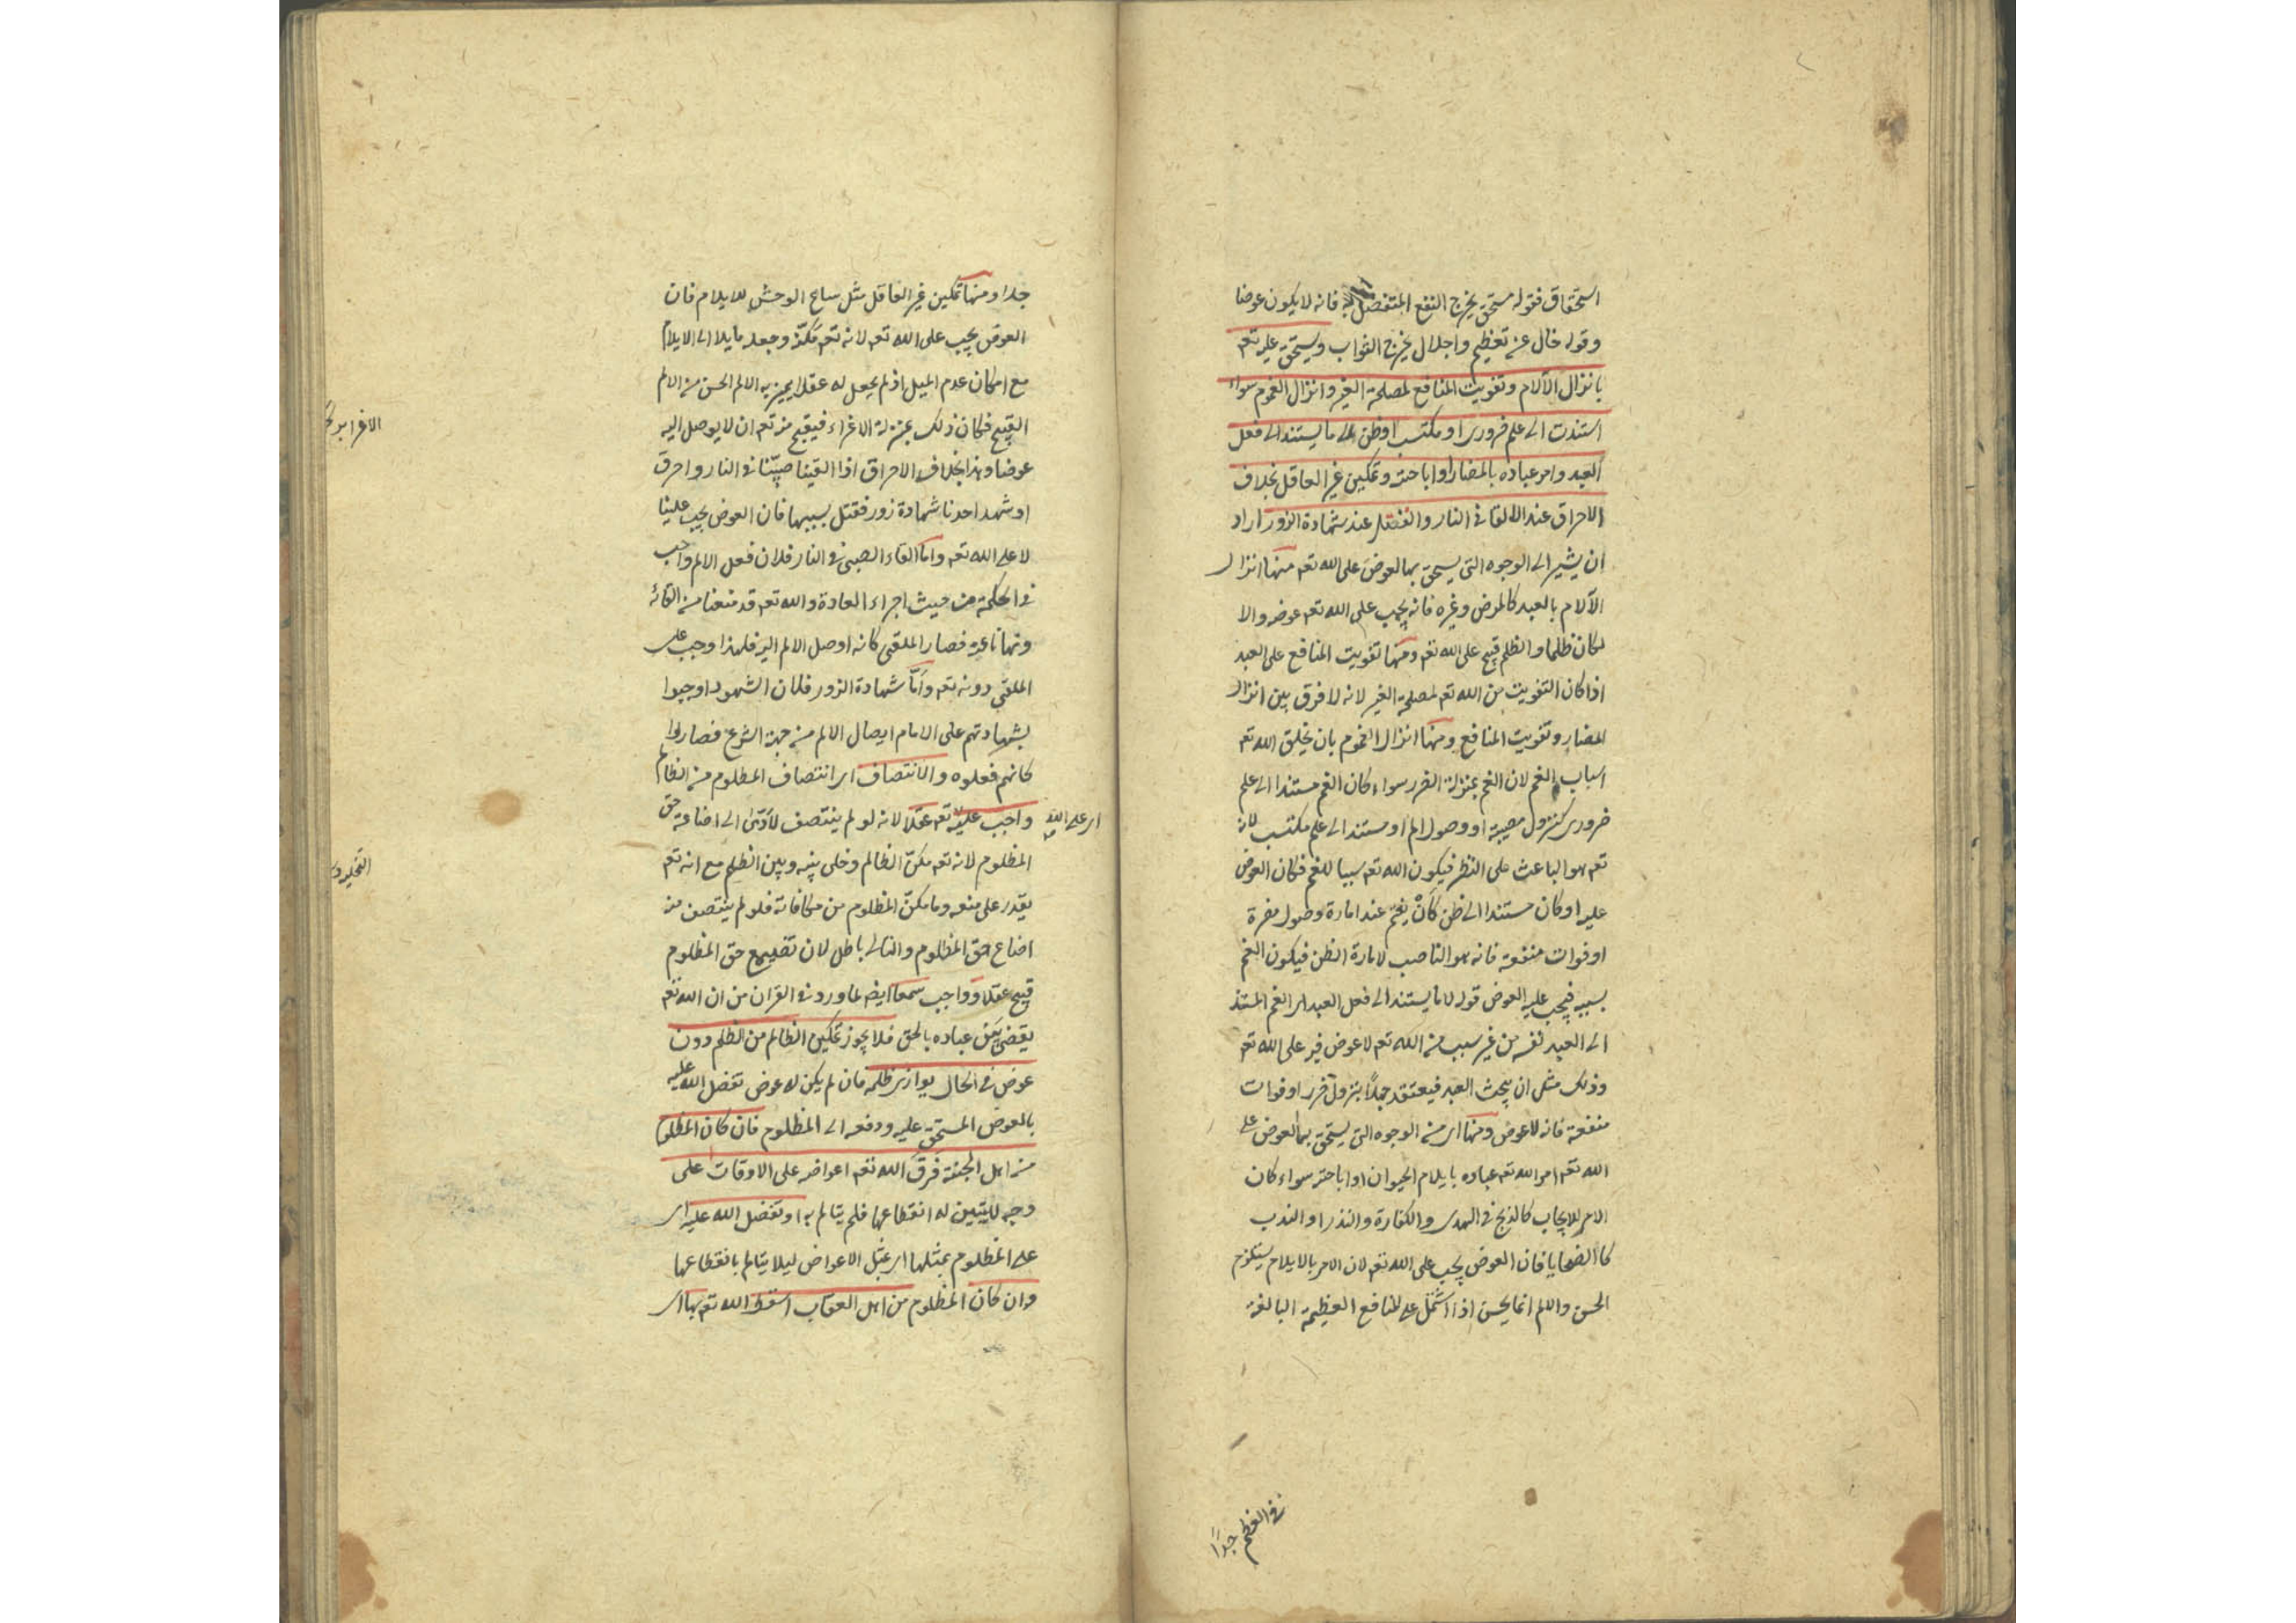 استحقاق فقوله مستحق يخرج النفع المتفضل به فانه لا يكون عوضا
وقوله خال عن تعظيم واجلال يخرج الثواب ويستحق عليه تعه
بانزال الآلام وتفويت المنافع لمصلحة الغير وانزال الغموم سواء
استندت الى علم ضرورى او مكتسب او ظن لا ما يستند الى فعل
العبد وامر عباده بالمضار او اباحته وتمكين غير العاقل بخلاف
الاحراق عند الالقا فى النار والقتل عند شهادة الزور اراد
ان يشير الى الوجوه التى يستحق بها العوض على الله تعه منها انزال
الآلام بالعبد كالمرض وغيره فانه يجب على الله تعه عوضه والا
لكان ظلما والظلم قبيح على الله تعه ومنها تفويت المنافع على العبد
اذا كان التفويت من الله تعه لمصلحة الغير لانه لا فرق بين انزال
المضار وتفويت المنافع ومنها انزال الغموم بان يخلق الله تعه
اسباب الغم لان الغم بمنزلة الضرر سواء كان الغم مستندا الى علم
ضرورى كنزول مصيبة او وصول الم او مستندا الى علم مكتسب لانه
تعه هو الباعث على النظر فيكون الله تعه سببا للغم فكان العوض
عليه او كان مستندا الى ظن كأن يغتم عند امارة وصول مضرة
او فوات منفعة فانه هو الناصب لامارة الظن فيكون الغم
بسببه فيجب عليه العوض قوله لا ما يستند الى فعل العبد اى الغم المستند
الى العبد نفسه من غير سبب من الله تعه لا عوض فيه على الله تعه
وذلك مثل ان يبحث العبد فيعتقد جهلا بنزول ضرر او فوات
منفعة فانه لا عوض ومنها اى من الوجوه التى يستحق بها العوض على
الله تعه امر الله تعه عباده بايلام الحيوان او اباحته سواء كان
الامر للايجاب كالذبح فى الهدى والكفارة والنذر او الندب
كالضحايا فان العوض يجب على الله تعه لان الامر بالايلام يستلزم
الحسن والالم انما يحسن اذا اشتمل على المنافع العظيمة البالغة
فى العظم جدا
جدا ومنها تمكين غير العاقل مثل سباع الوحش للايلام فان
العوض يجب على الله تعه لانه تعه مكنه وجعله مايلا الى الايلام
مع امكان عدم الميل اذ لم يجعل له عقلا يميز به الالم الحسن من الالم
القبيح فكان ذلك بمنزلة الاغراء فيقبح منه تعه ان لا يوصل اليه
عوضا وهذا بخلاف الاحراق اذا القينا صبيا فى النار واحرق
او شهد احدنا شهادة زور فقتل بسببها فان العوض يجب علينا
لا على الله تعه واما القاء الصبى فى النار فلان فعل الالم واجب
فى الحكمة من حيث اجراء العادة والله تعه قد منعنا من القائه
ونهانا عنه فصار الملقى كانه اوصل الالم اليه فلهذا وجب على
الملقى دونه تعه واما شهادة الزور فلان الشهود اوجبوا
بشهادتهم على الامام ايصال الالم من جهة الشرع فصاروا
كانهم فعلوه والانتصاف اى انتصاف المظلوم من الظالم
واجب عليه تعه عقلا لانه لو لم ينتصف لأدى الى اضاعة حق
اى على الله
المظلوم لانه تعه مكن الظالم وخلى بينه وبين الظلم مع انه تعه
يقدر على منعه وما مكن المظلوم من مكافاته فلو لم ينتصف منه
اضاع حق المظلوم والتالى باطل لان تضييع حق المظلوم
قبيح عقلا وواجب سمعا ايضه لما ورد فى القران من ان الله تعه
يقضى بين عباده بالحق فلا يجوز تمكين الظالم من الظلم دون
عوض فى الحال يوازى ظلمه فان لم يكن له عوض تفضل الله عليه
بالعوض المستحق عليه ودفعه الى المظلوم فان كان المظلوم
من اهل الجنة فرق الله تعه اعواضه على الاوقات على
وجه لا يتبين له انقطاعها فلم يتالم به او تفضل الله عليه اى
على المظلوم بمثلها اى بمثل الاعواض ليلا يتالم بانقطاعها
وان كان المظلوم من اهل العقاب اسقط الله تعه بها اى